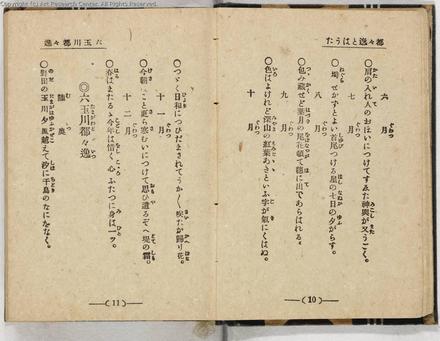 Copyright (C) Art Research Center, All Rights Reserved.
都々逸とはうた
六月
○肩の入れ人のおほいにつけてすゑた神輿が又うごく。
七月
○塒せかずとよい首尾つける星の七日の夕がらす。
八月
○包み蔵せど葉月の尾花頓て穂に出てあらはれる。
十月
○色はよけれど深山の紅葉あさといふ字が気にくはぬ。
—(10)—
六玉川都々逸
十一月
○つゞく日和につひだまされてうか〳〵咲たか歸り花。
十二月
○今朝はこと更ら寒むいにつけて思ひ遣るぞへ堤の霜。
○春はまたるゝ今年は惜く心ふたつに身は一ツ。
◎六玉川都々逸
陸奥
○野田の玉川夕風越えて汐に千鳥のなにをなく。
—(11)—